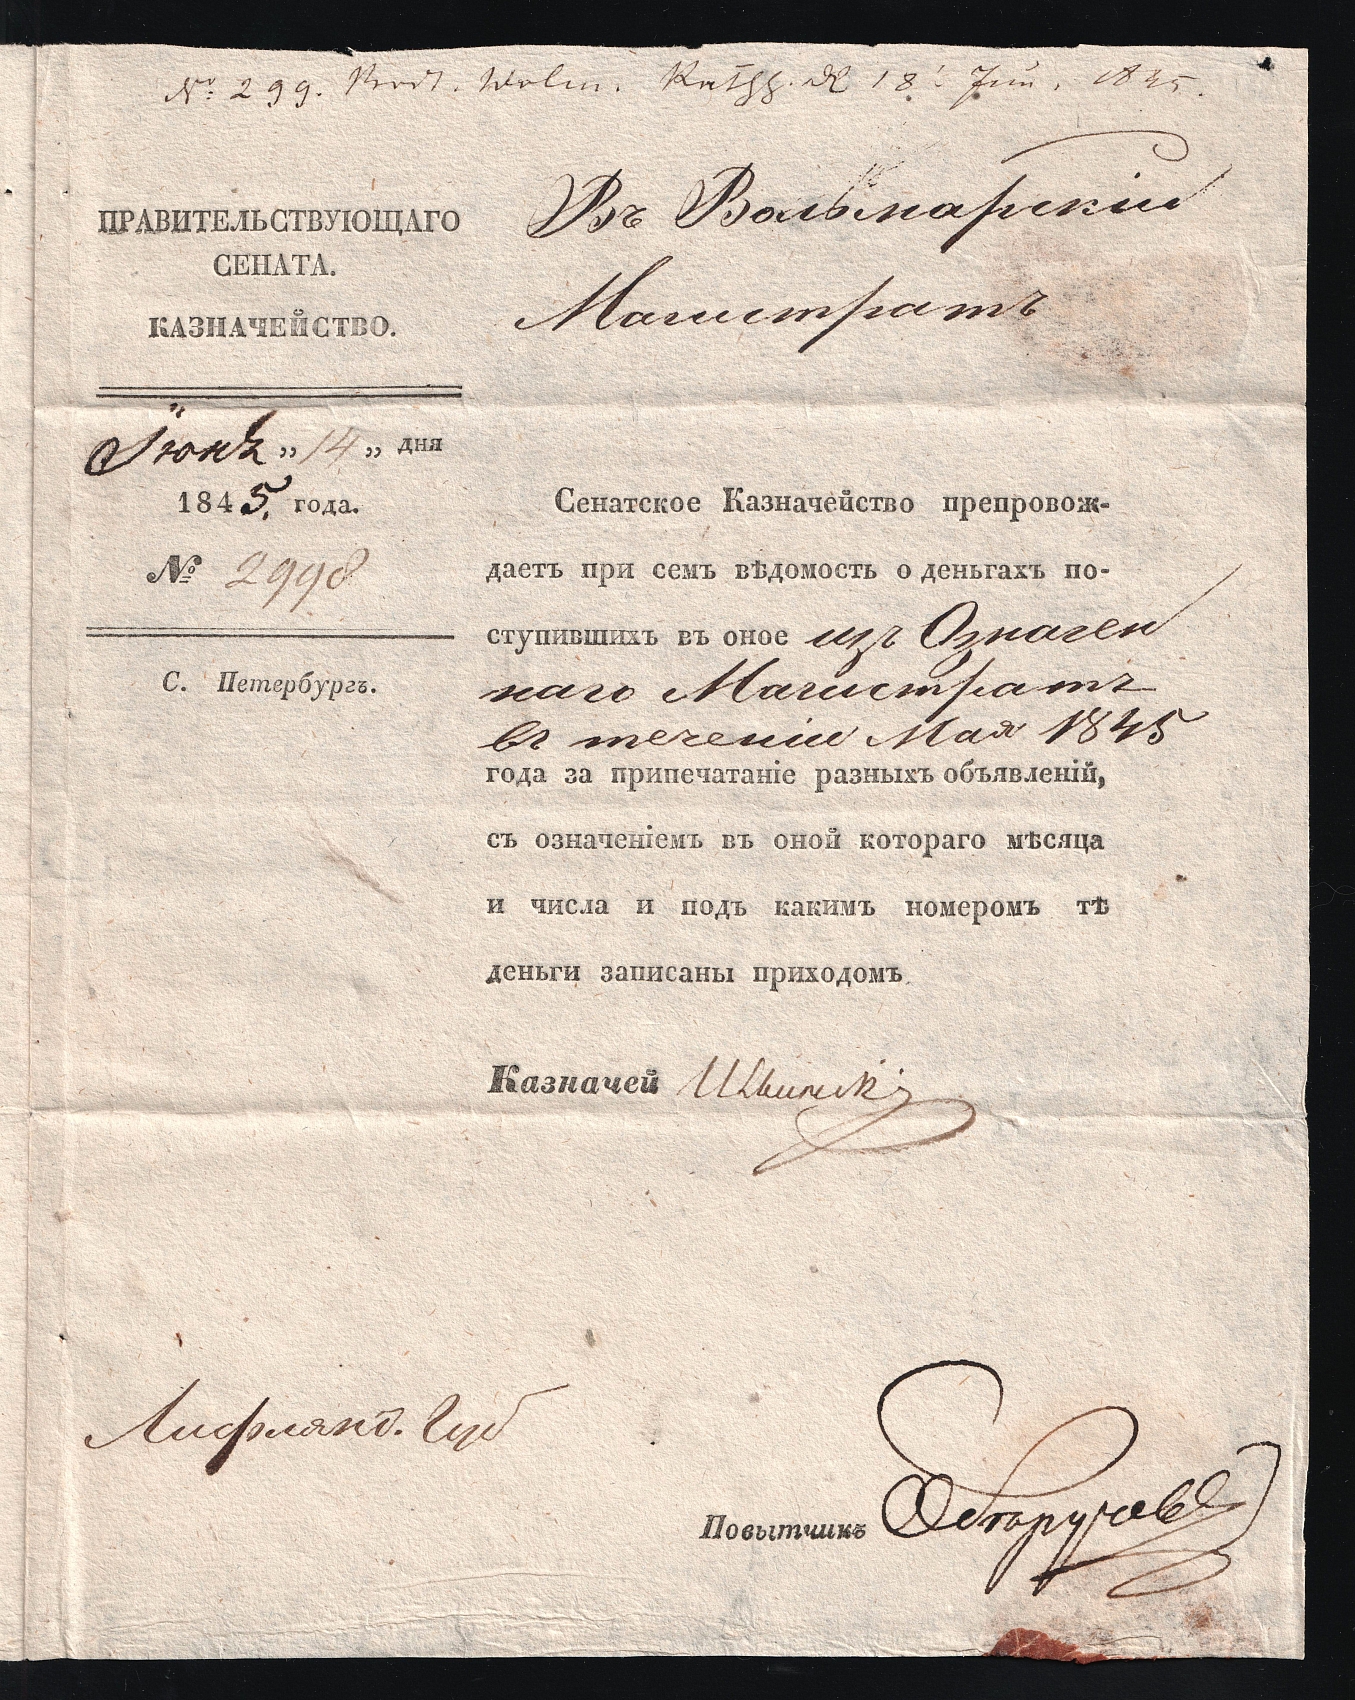 № 299. Prod. Wolm. Rathh. d 18t Juni. 1845.
ПРАВИТЕЛЬСТВУЮЩАГО
СЕНАТА.
КАЗНАЧЕЙСТВО.
Въ Вольмарскій
Магистратъ
Іюнь „ 14 „ дня
1845, года.
№ 2998
С. Петербургъ.
Сенатское Казначейство препровож-
даетъ при семъ вѣдомость о деньгахъ по-
ступившихъ въ оное изъ Означен
наго Магистратъ
въ теченіи Мая 1845
года за припечатаніе разныхъ объявленій,
съ означеніемъ въ оной котораго мѣсяца
и числа и подъ какимъ номеромъ тѣ
деньги записаны приходомъ
Казначей
Лифлянд. Губ
Повытчикъ